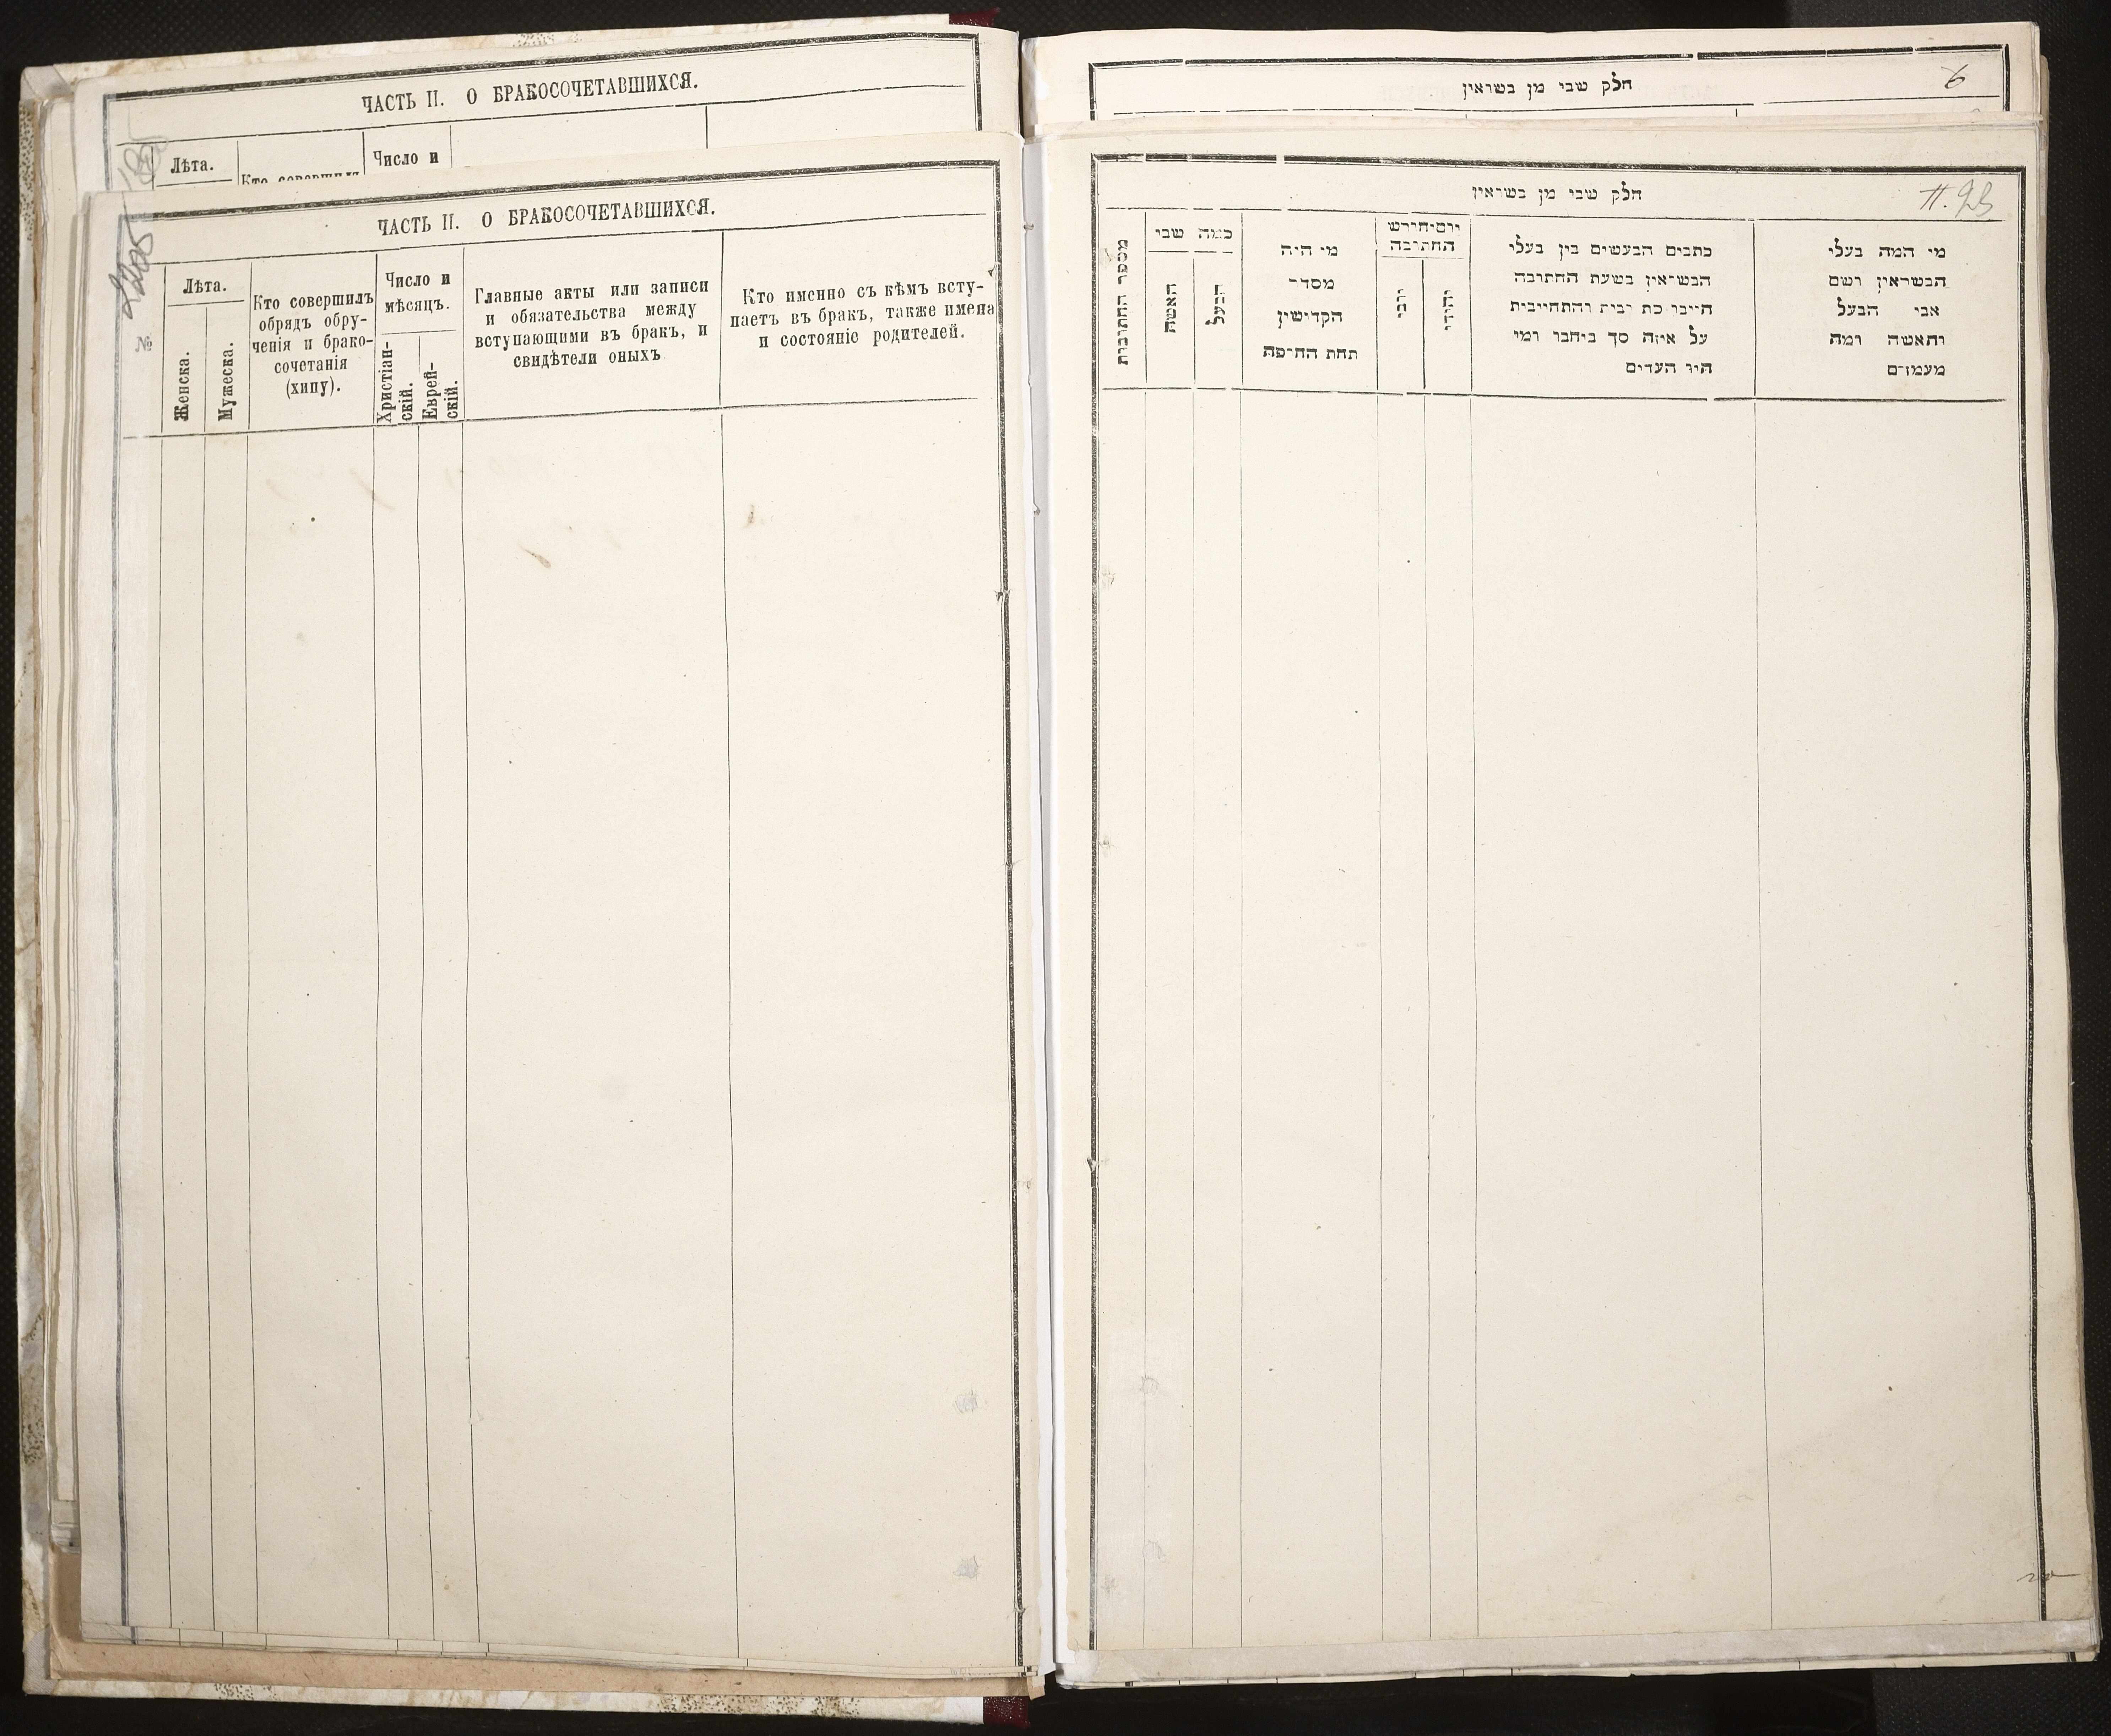 ЧАСТЬ II. О БРАКОСОЧЕТАВШИХСЯ.
Лѣта.
Число и
ЧАСТЬ II. О БРАКОСОЧЕТАВШИХСЯ.
№
Лѣта.
Женска.
Мужеска.
Кто совершилъ
обрядъ обру-
ченія и брако-
сочетанія
(хипу).
Число и
мѣсяцъ.
Христіан-
скій.
Еврей-
скій.
Главные акты или записи
и обязательства между
вступающими въ бракъ, и
свидѣтели оныхъ
Кто именно съ кѣмъ всту-
паетъ въ бракъ, также имена
и состояніе родителей.
חלק שבי מן בשראין
6
חלק שבי מן בשראין
מספר החתובות
כמה שבי
האשה
הבעל
מי היה
מסדר
הקדישין
תחת החיפה
החתובה
כתבים הבעשים בין בעלי
הבשראין בשעת החתובה
על איזה סך ביחבו ומי
היו העדים
מי המה בעלי
הבשראין ושם
אבי הבעל
והאשה ומה
מעמדם